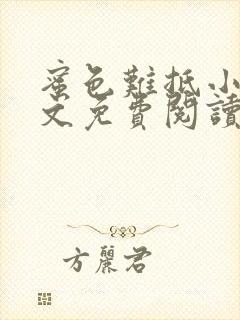 蜜色難抵小
文免費閱讀
方麗君